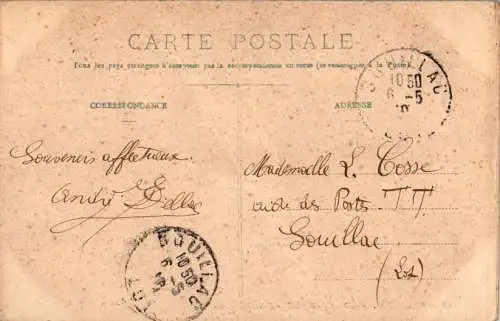 CARTE POSTALE
Tous les pays étrangers n'acceptent pas la correspondance au recto (se renseigner à la Poste)
CORRESPONDANCE
ADRESSE
SOUILLAC
10 50
6 -5
Souvenirs affectueux
André
Mademoiselle L. Cosse
des Postes TT
Souillac
(Lot)
SOUILLAC
10 50
6 -5
LOT